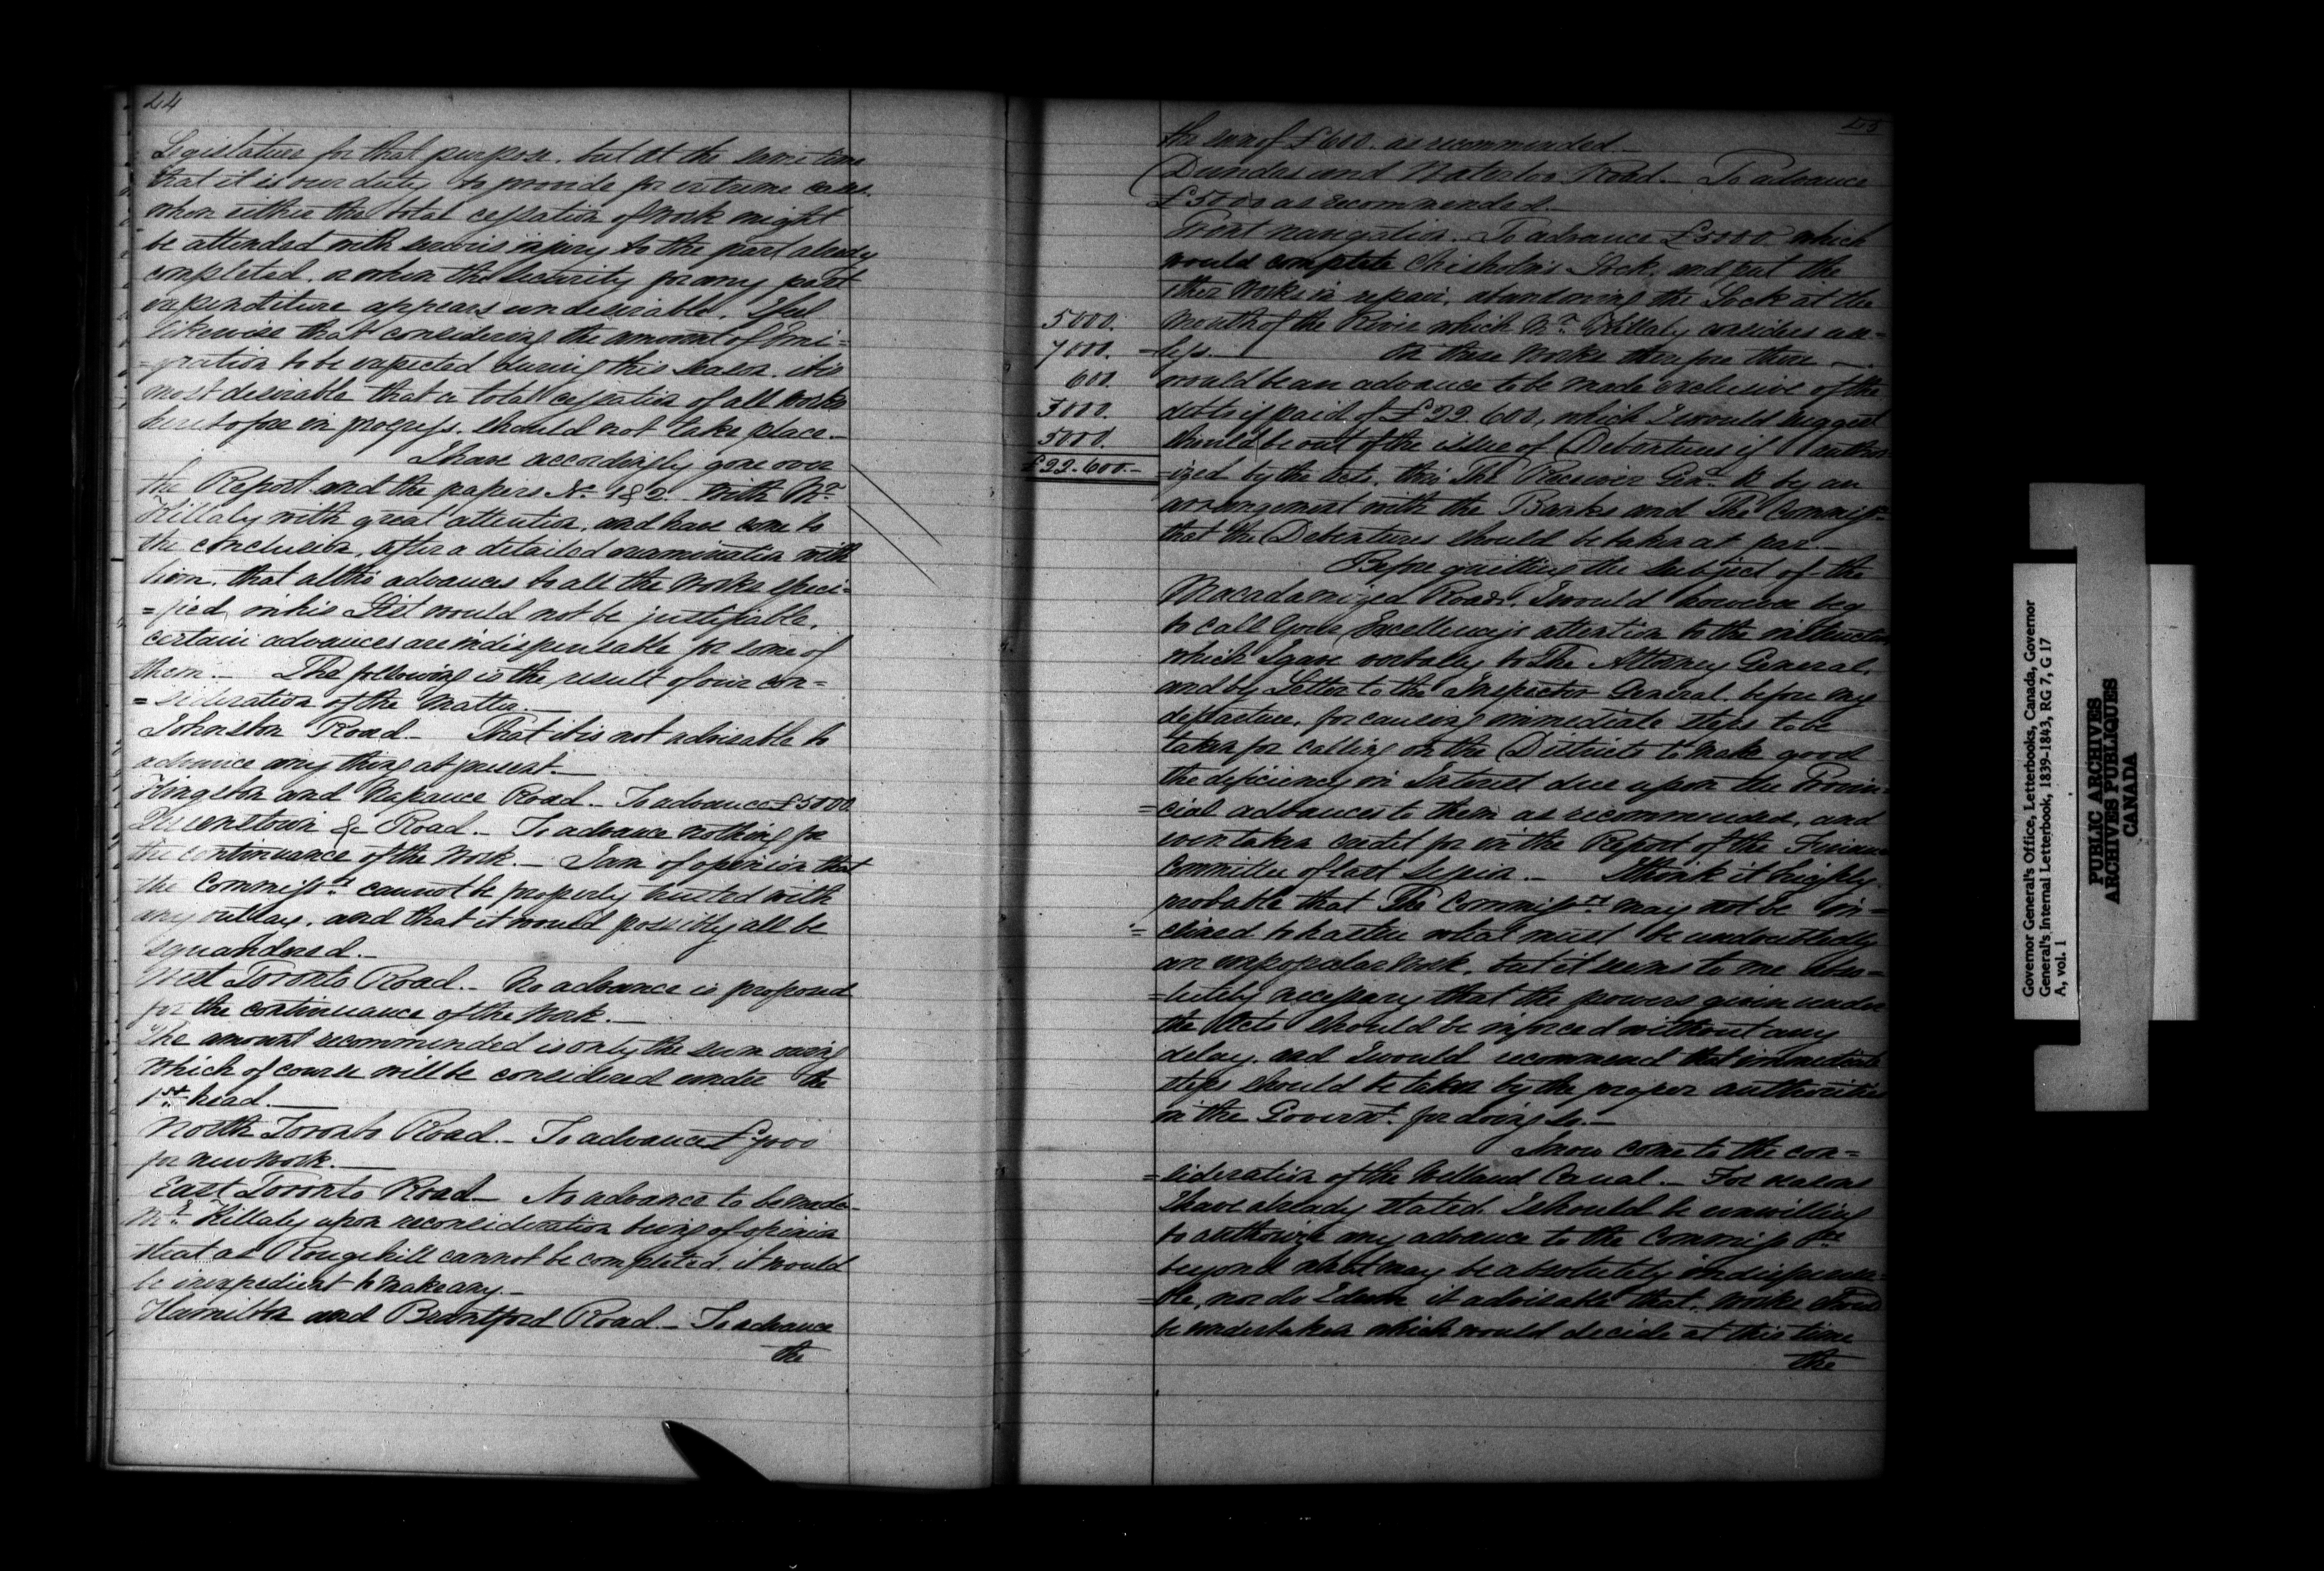 44
Legislature for that purpose. but at the same time
that it is our duty to provide for extreme cases.
when either the total cessation of work might
be attended with serious injury to the part already
completed. or when the security for any past
expenditure appears undesirable. I feel
likewise that considering the amount of Emi=
=gration to be expected during this season. it is
most desirable that a total cessation of all works
heretofore in progress. should not take place.—
I have accordingly gone over
the Report and the papers No. 1 & 2. with Mr.
Killaly with great attention. and have come to
the conclusion, after a detailed examination with
him. that altho advances to all the works speci=
=fied in his List would not be justifiable.
certain advances are indispensable for some of
them.— The following is the result of our con=
=sideration of the Matter.—
Johnston Road.— That it is not advisable to
advance any thing at present.—
Kingston and Napanee Road.— To advance £5000
Queenstown &c Road.— To advance nothing for
the continuance of the Work.— I am of opinion that
the Commissrs. cannot be properly trusted with
any outlay. and that it would possibly all be
squandered.—
West Toronto Road.— No advance is proposed
for the continuance of the Work.—
The amount recommended is only the sum owing
which of course will be considered under the
1st. head.—
North Toronto Road.— To advance £7000
for new work.—
East Toronto Road— No advance to be made—
Mr. Killaly upon reconsideration being of opinion
that as Rouge hill cannot be completed it would
be inexpedient to make any.—
Hamilton and Brantford Road.— To advance
the
45
the sum of £600. as recommended.—
Dundas and Waterloo Road.— To advance
£5000 as recommended.—
Trent navigation. To advance £5000 which
would complete Chisholm's Lock. and put the
other Works in repair. abandoning the Lock at the
5000. Mouth of the River which Mr. Killaly considers use=
7000. =less.— On these Works therefore there —
600. would be an advance to be made exclusive of the
5000. debts if paid of £22.600, which I would suggest
5000. should be out of the issue of Debentures if author
£22.600.— =ized by the Acts. thro The Receiver Genl. & by an
arrangement with the Banks and The Commissrs.
that the Debentures should be taken at par.—
Before quitting the subject of the
Macadamized Roads. I would however beg
to call Your Excellency's attention to the instructions
which I gave verbally to The Attorney General.
and by Letter to the Inspector General. before my
departure, for causing immediate steps to be
taken for calling on the Districts to make good
the deficiency in Interest due upon the Provin=
=cial advances to them as recommended, and
even taken credit for in the Report of the Finance
Committee of last Session.— I think it highly
probable that The Commissrs. may not be in=
=clined to hasten what must be undoubtedly
an unpopular Work. but it seems to me abso=
=lutely necessary that the powers given under
the Acts should be inforced without any
delay. and I would recommend that immediate
steps should be taken by the proper authorities
in the Governt. for doing so.—
I now come to the con=
=sideration of the Welland Canal.— For reasons
I have already stated. I should be unwilling
to authorize any advance to the Commissrs.
beyond what may be absolutely indispensa=
=ble, nor do I deem it advisable that works should
be undertaken which would decide at this time
the
Governor General's Office, Letterbooks, Canada, Governor
General's Internal Letterbook, 1839-1843, RG 7, G 17
A, vol. 1
PUBLIC ARCHIVES
ARCHIVES PUBLIQUES
CANADA